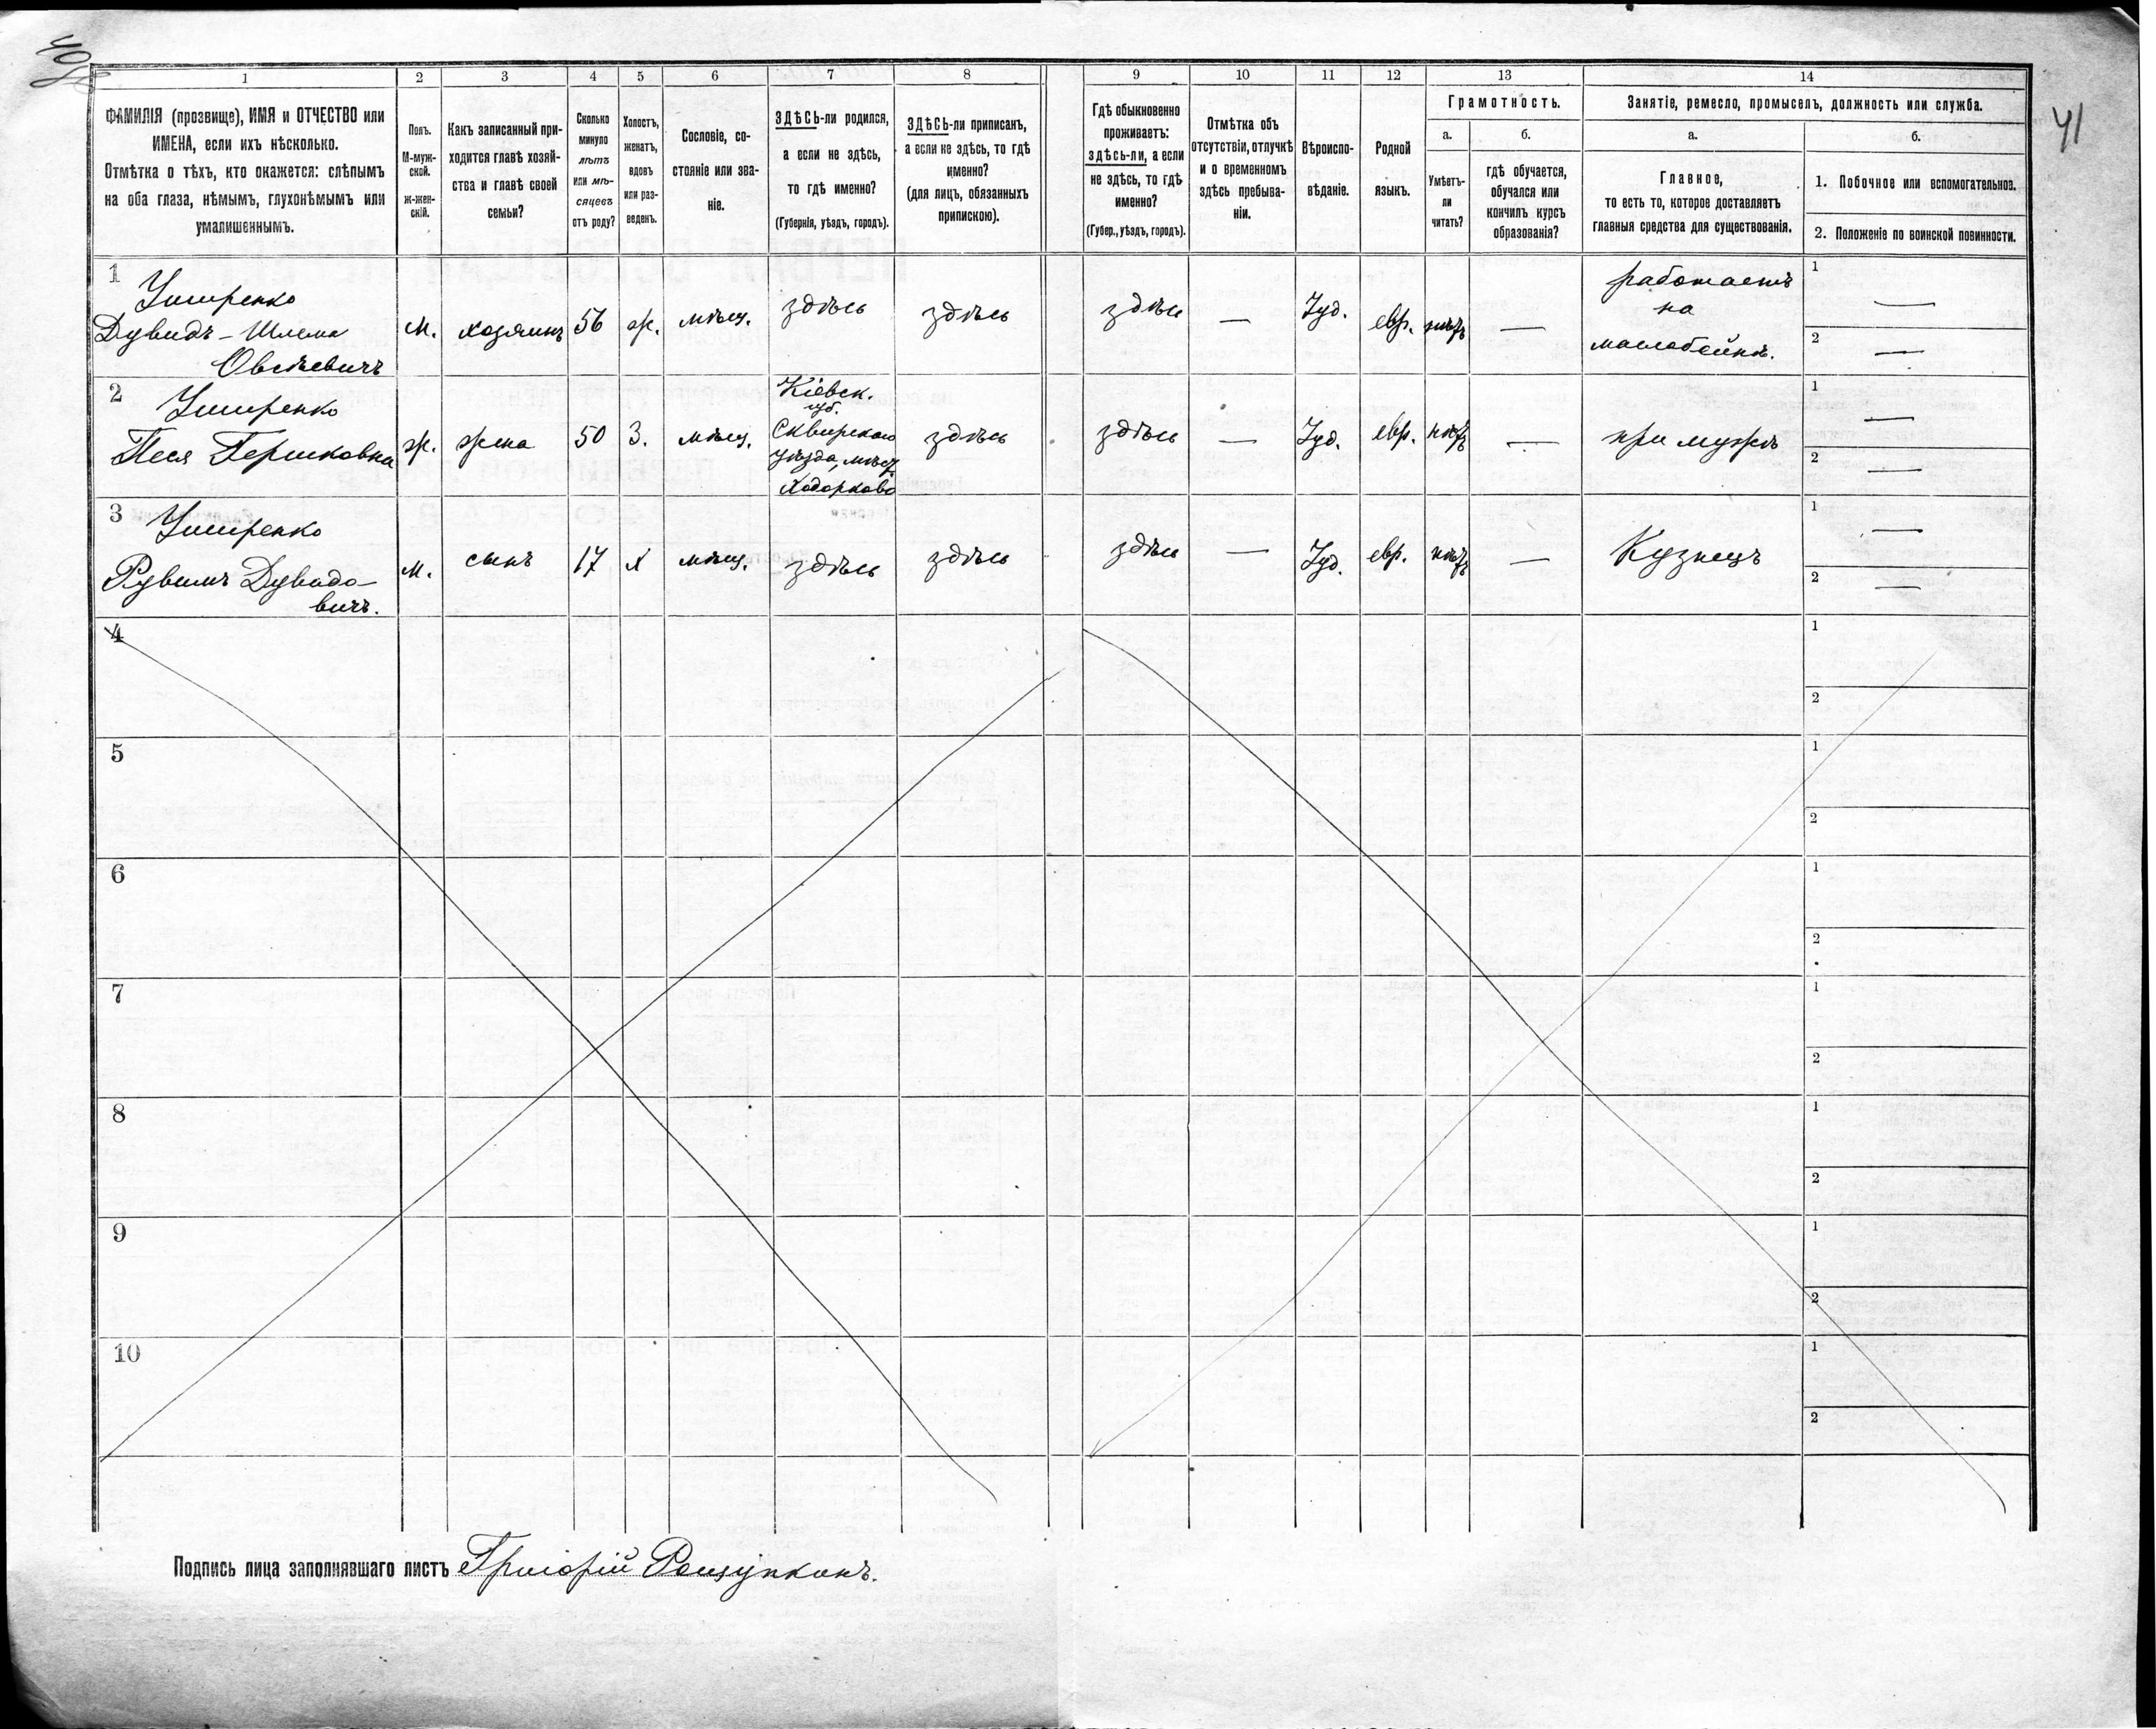 40об
41
1
2
3
4
5
6
7
8
9
10
11
12
13
14
ФАМИЛІЯ (прозвище), ИМЯ и ОТЧЕСТВО или
ИМЕНА, если ихъ нѣсколько.
Отмѣтка о тѣхъ, кто окажется: слѣпымъ
на оба глаза, нѣмымъ, глухонѣмымъ или
умалишеннымъ.
Полъ.
М-муж-
ской.
ж-жен-
скій.
Какъ записанный при-
ходится главѣ хозяй-
ства и главѣ своей
семьи?
Сколько
минуло
лѣтъ
или мѣ-
сяцевъ
отъ роду?
Холостъ,
женатъ,
вдовъ
или раз-
веденъ.
Сословіе, со-
стояніе или зва-
ніе.
ЗДѢСЬ-ли родился,
а если не здѣсь,
то гдѣ именно?
(Губернія, уѣздъ, городъ).
ЗДѢСЬ-ли приписанъ,
а если не здѣсь, то гдѣ
именно?
(для лицъ, обязанныхъ
припискою).
Гдѣ обыкновенно
проживаетъ:
здѣсь-ли, а если
не здѣсь, то гдѣ
именно?
(Губер., уѣздъ, городъ).
Отмѣтка объ
отсутствіи, отлучкѣ
и о временномъ
здѣсь пребыва-
ніи.
Вѣроиспо-
вѣданіе.
Родной
языкъ.
Грамотность.
а.
Умѣетъ-
ли
читать?
б.
гдѣ обучается,
обучался или
кончилъ курсъ
образованія?
Занятіе, ремесло, промыселъ, должность или служба.
а.
Главное,
то есть то, которое доставляетъ
главныя средства для существованія.
б.
1. Побочное или вспомогательное.
2. Положеніе по воинской повинности.
1
Ушеренко
Дувидъ-Шлема
Овсѣевичъ
м.
хозяинъ
56
ж.
мѣщ.
здѣсь
здѣсь
здѣсь
—
Iуд.
евр.
нѣтъ
—
работаетъ
на
маслобойнѣ.
1 —
2 —
2
Ушеренко
Песя Гершковна
ж.
жена
50
З.
мѣщ.
Кіевск.
губ.
Сквирскаго
уѣзда, мѣст.
Ходорково
здѣсь
здѣсь
—
Iуд.
евр.
нѣтъ
—
при мужѣ
1 —
2 —
3
Ушеренко
Рувимъ Дувидо-
вичъ.
м.
сынъ
17
х
мѣщ.
здѣсь
здѣсь
здѣсь
—
Iуд.
евр.
нѣтъ
—
Кузнецъ
1 —
2 —
4
1
2
5
1
2
6
1
2
7
1
2
8
1
2
9
1
2
10
1
2
Подпись лица заполнявшаго листъ Григорій Рощупкинъ.